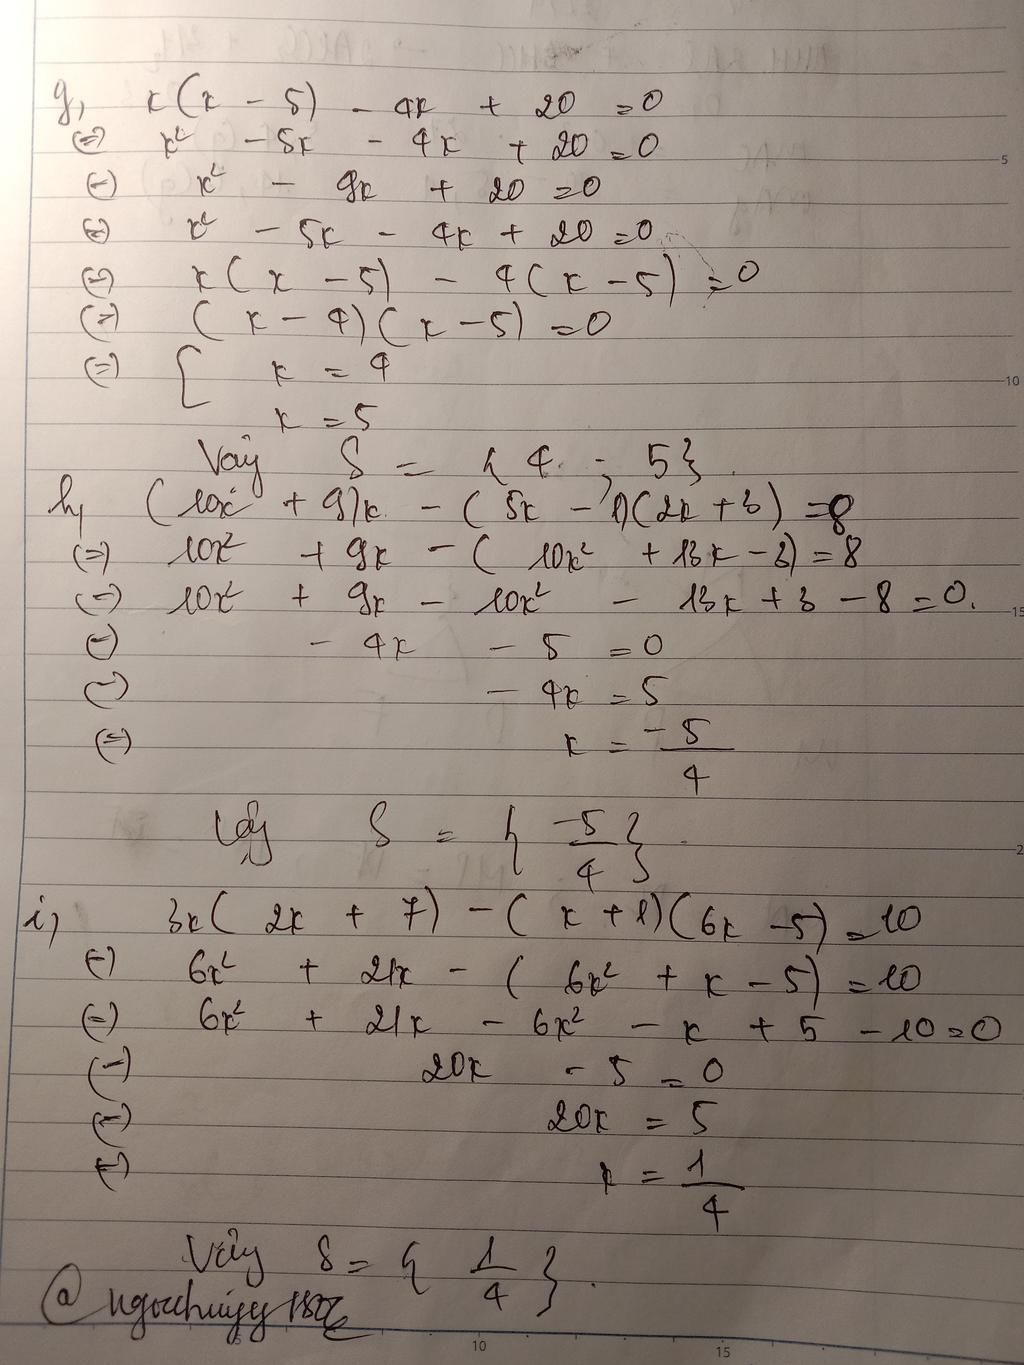 g, x(x - 5) - 4x + 20 = 0
(=) x² - 5x - 4x + 20 = 0
(=) x² - 9x + 20 = 0
(=) x² - 5x - 4x + 20 = 0
(=) x(x - 5) - 4(x - 5) = 0
(=) (x - 4)(x - 5) = 0
(=) [ x = 4
x = 5
Vậy S = {4 ; 5}.
h, (10x + 9)x - (5x - 1)(2x + 3) = 8
(=) 10x² + 9x - (10x² + 13x - 3) = 8
(=) 10x² + 9x - 10x² - 13x + 3 - 8 = 0.
(=) - 4x - 5 = 0
(=) - 4x = 5
(=) x = -5/4
Vậy S = {-5/4}.
i, 3x(2x + 7) - (x + 1)(6x - 5) = 10
(=) 6x² + 21x - (6x² + x - 5) = 10
(=) 6x² + 21x - 6x² - x + 5 - 10 = 0
(=) 20x - 5 = 0
(=) 20x = 5
(=) x = 1/4
Vậy S = {1/4}.
5
10
15
2
10
15